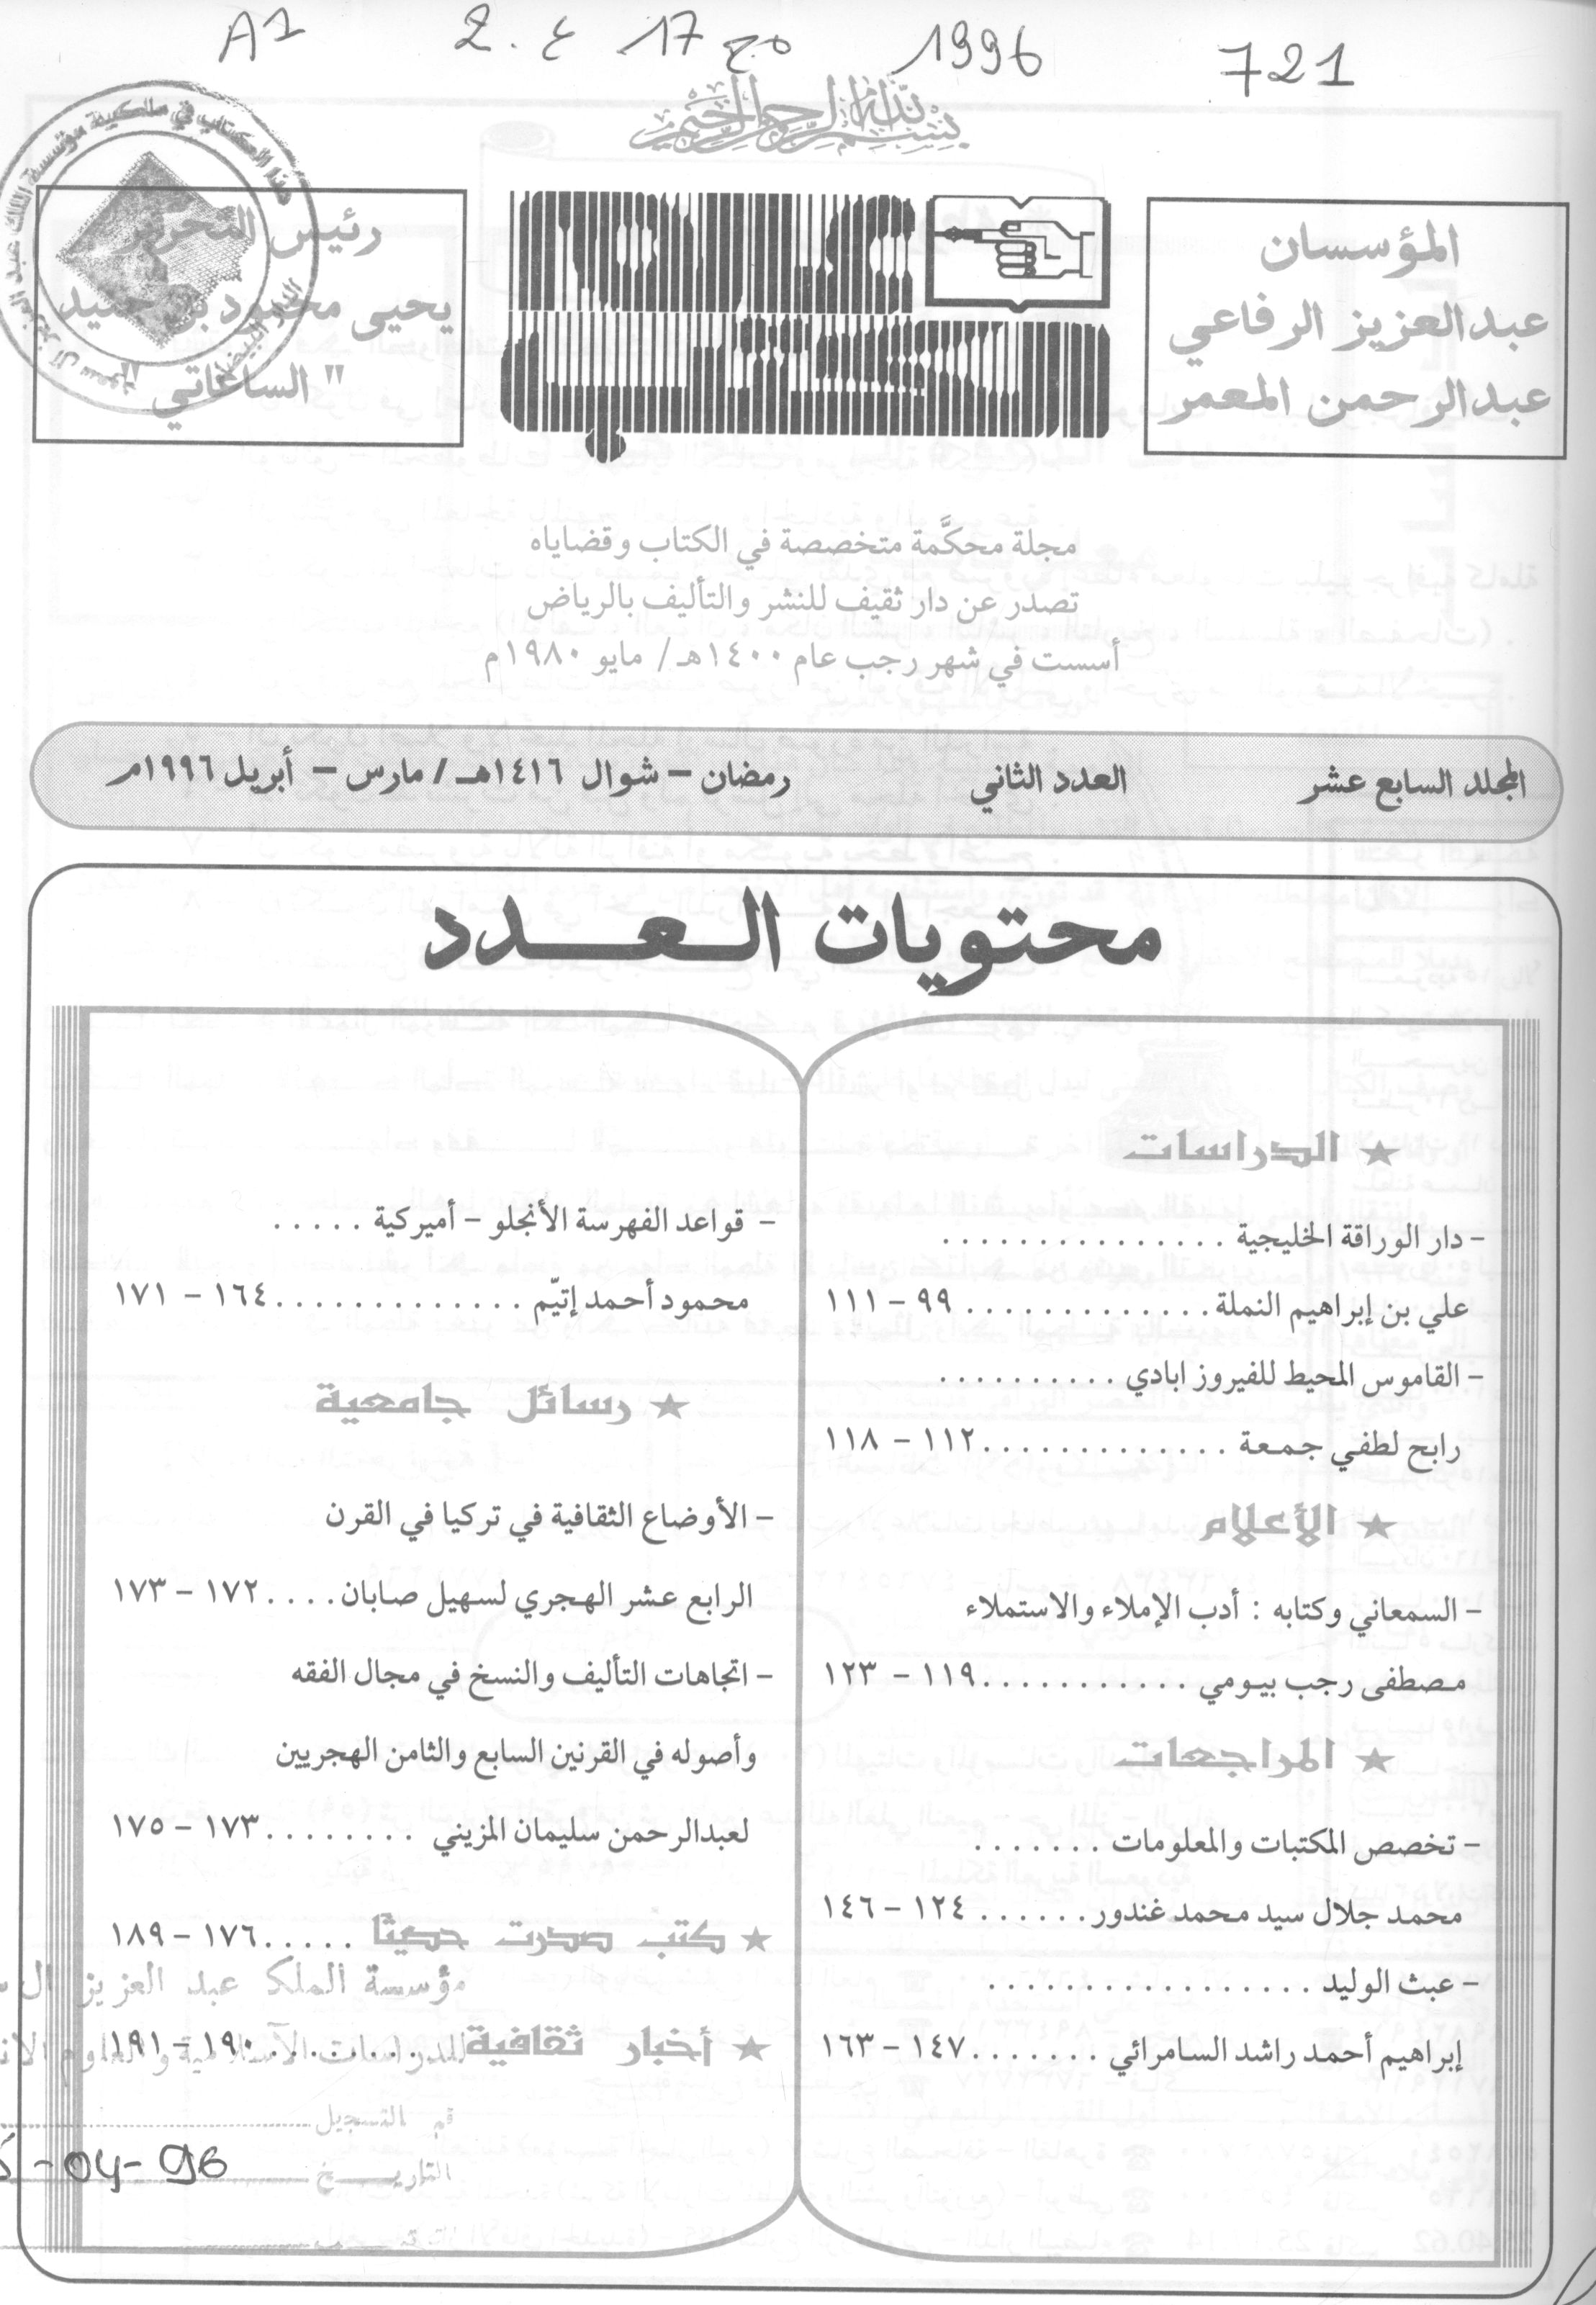 A1 2.ع 17 مج 1996 721
بسم الله الرحمن الرحيم
المؤسسان
عبدالعزيز الرفاعي
عبدالرحمن المعمر
عالم الكتب
رئيس التحرير
يحيى محمود بن جنيد
" الساعاتي "
مجلة محكَّمة متخصصة في الكتاب وقضاياه
تصدر عن دار ثقيف للنشر والتأليف بالرياض
أسست في شهر رجب عام ١٤٠٠هـ/ مايو ١٩٨٠م
المجلد السابع عشر العدد الثاني رمضان – شوال ١٤١٦هـ / مارس – أبريل ١٩٩٦م
محتويات العـــدد
★ الدراسات
– دار الوراقة الخليجية . . . . . . . . . . . . . . .
علي بن إبراهيم النملة. . . . . . . . . . . . . ٩٩ – ١١١
– القاموس المحيط للفيروز ابادي . . . . . . . . . .
رابح لطفي جمعة . . . . . . . . . . . . . ١١٢ – ١١٨
★ الأعلام
– السمعاني وكتابه : أدب الإملاء والاستملاء
مصطفى رجب بيومي . . . . . . . . . . . ١١٩ – ١٢٣
★ المراجعات
– تخصص المكتبات والمعلومات . . . . . . .
محمد جلال سيد محمد غندور. . . . . . ١٢٤ – ١٤٦
– عبث الوليد . . . . . . . . . . . . . . . . .
إبراهيم أحمد راشد السامرائي . . . . . . . ١٤٧ – ١٦٣
– قواعد الفهرسة الأنجلو – أميركية . . . . .
محمود أحمد إتيّم . . . . . . . . . . . . . ١٦٤ – ١٧١
★ رسائل جامعية
– الأوضاع الثقافية في تركيا في القرن
الرابع عشر الهجري لسهيل صابان. . . . ١٧٢ – ١٧٣
– اتجاهات التأليف والنسخ في مجال الفقه
وأصوله في القرنين السابع والثامن الهجريين
لعبدالرحمن سليمان المزيني . . . . . . . . ١٧٣ – ١٧٥
★ كتب صدرت حديثًا . . . . . ١٧٦ – ١٨٩
★ أخبار ثقافية . . . . . . . ١٩٠ – ١٩١
مؤسسة الملك عبد العزيز ال
للدراسات الاسلامية والعلوم
التسجيل
التاريخ -04-96